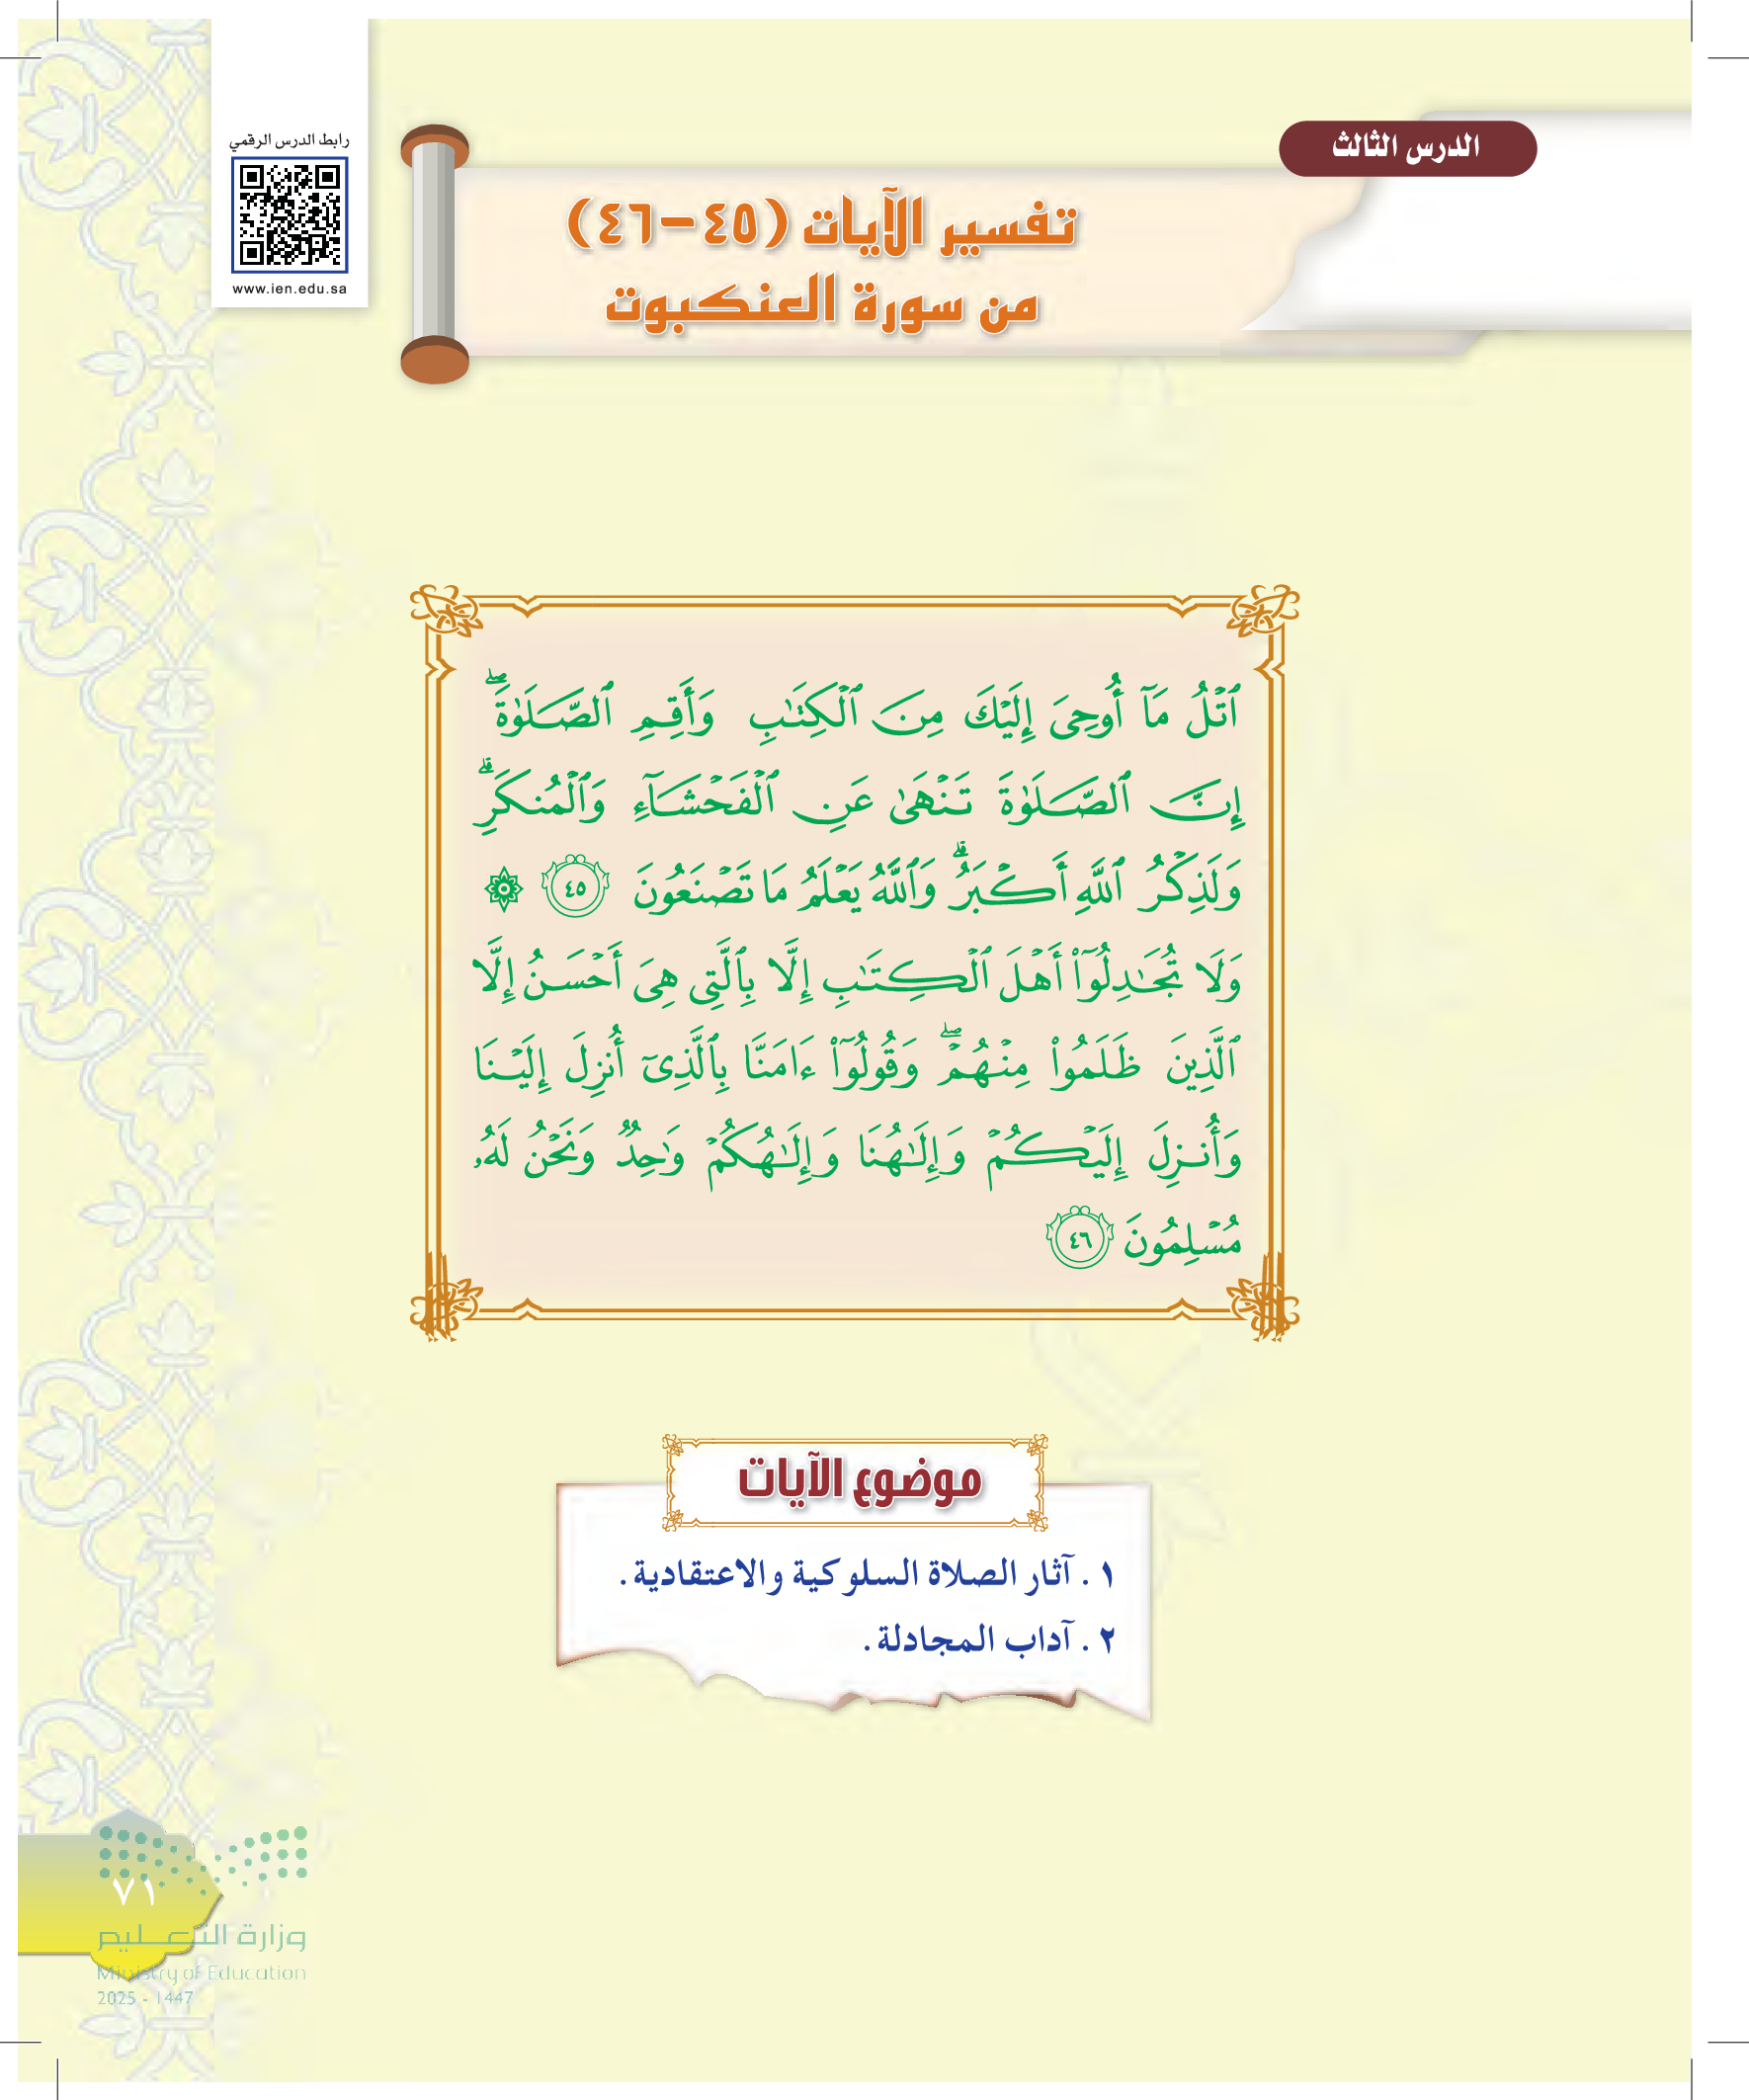 الدرس الثالث
رابط الدرس الرقمي
www.ien.edu.sa
تفسير الآيات (٤٥-٤٦)
من سورة العنكبوت
ٱتۡلُ مَآ أُوحِيَ إِلَيۡكَ مِنَ ٱلۡكِتَٰبِ وَأَقِمِ ٱلصَّلَوٰةَۖ
إِنَّ ٱلصَّلَوٰةَ تَنۡهَىٰ عَنِ ٱلۡفَحۡشَآءِ وَٱلۡمُنكَرِۗ
وَلَذِكۡرُ ٱللَّهِ أَكۡبَرُۗ وَٱللَّهُ يَعۡلَمُ مَا تَصۡنَعُونَ ٤٥ ۞
وَلَا تُجَٰدِلُوٓاْ أَهۡلَ ٱلۡكِتَٰبِ إِلَّا بِٱلَّتِي هِيَ أَحۡسَنُ إِلَّا
ٱلَّذِينَ ظَلَمُواْ مِنۡهُمۡۖ وَقُولُوٓاْ ءَامَنَّا بِٱلَّذِيٓ أُنزِلَ إِلَيۡنَا
وَأُنزِلَ إِلَيۡكُمۡ وَإِلَٰهُنَا وَإِلَٰهُكُمۡ وَٰحِدٞ وَنَحۡنُ لَهُۥ
مُسۡلِمُونَ ٤٦
موضوع الآيات
١ . آثار الصلاة السلوكية والاعتقادية.
٢ . آداب المجادلة.
٧١
وزارة التعليم
Ministry of Education
2025 - 1447